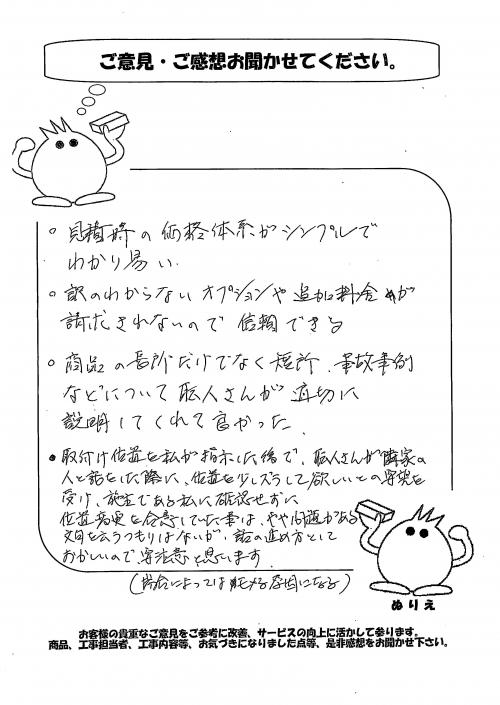 ご意見・ご感想お聞かせてください。
○ 見積時の価格体系がシンプルで
わかり易い.
○ 訳のわからない オプションや 追加料金が
請求されないので 信頼できる
○ 商品の長所だけでなく短所、事故事例
などについて 職人さんが 適切に
説明してくれて良かった.
● 取付け位置を私が指示した後で、職人さんが隣家の
人と話をした際に、位置を少しずらして欲しいとの要望を
受け、施主である私に確認せずに
位置変更を合意していた事は、やや問題がある
文句を云うつもりはないが、話の進め方として
おかしいので 要注意と思います
(場合によっては モメる原因になる)
ぬりえ
お客様の貴重なご意見をご参考に改善、サービスの向上に活かして参ります。
商品、工事担当者、工事内容等、お気づきになりました点等、是非感想をお聞かせ下さい。